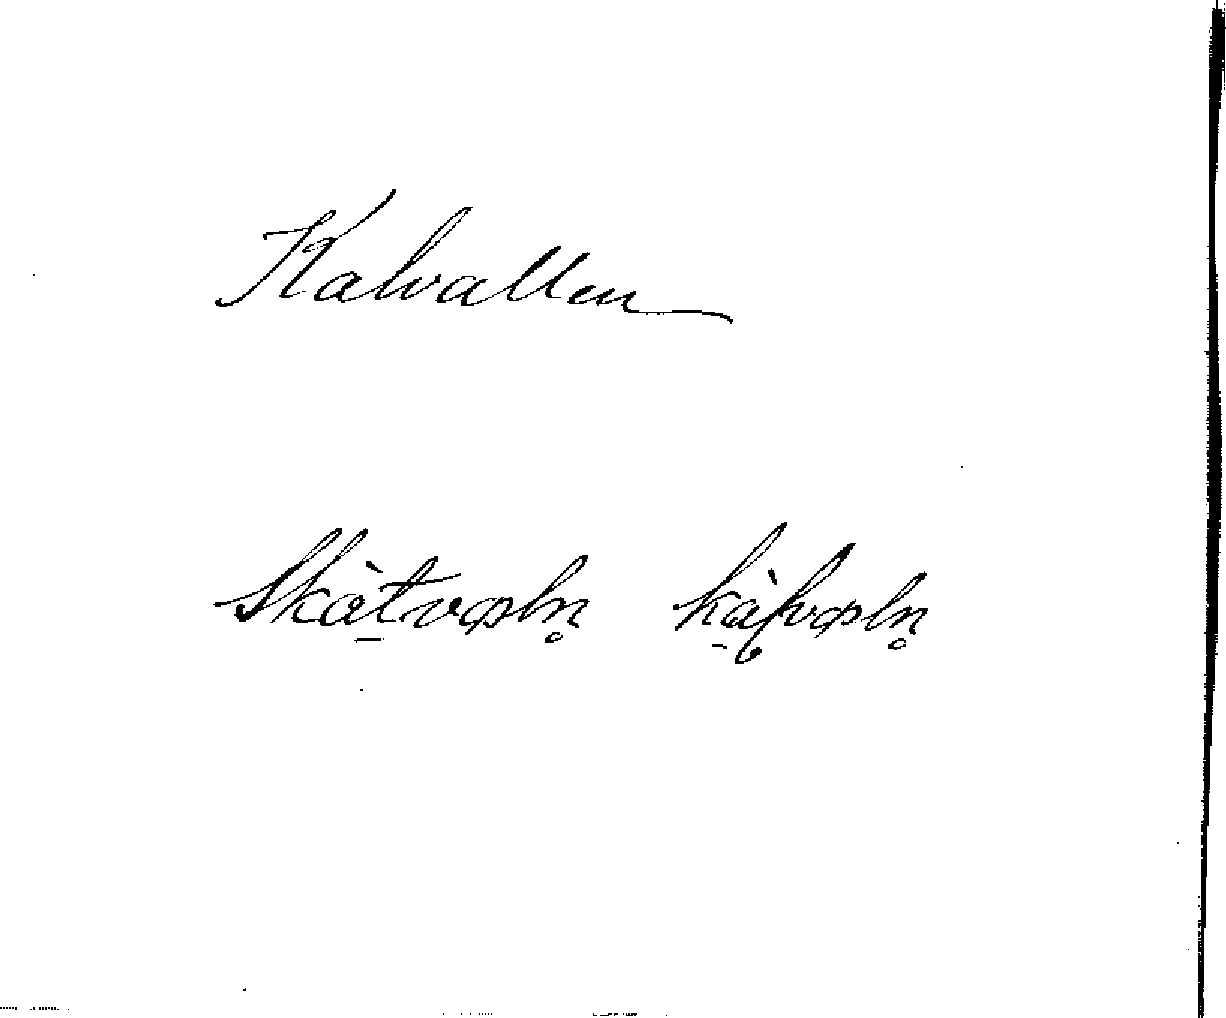 Kalvallen
Skàt̠vαln̥ kàlvαln̥